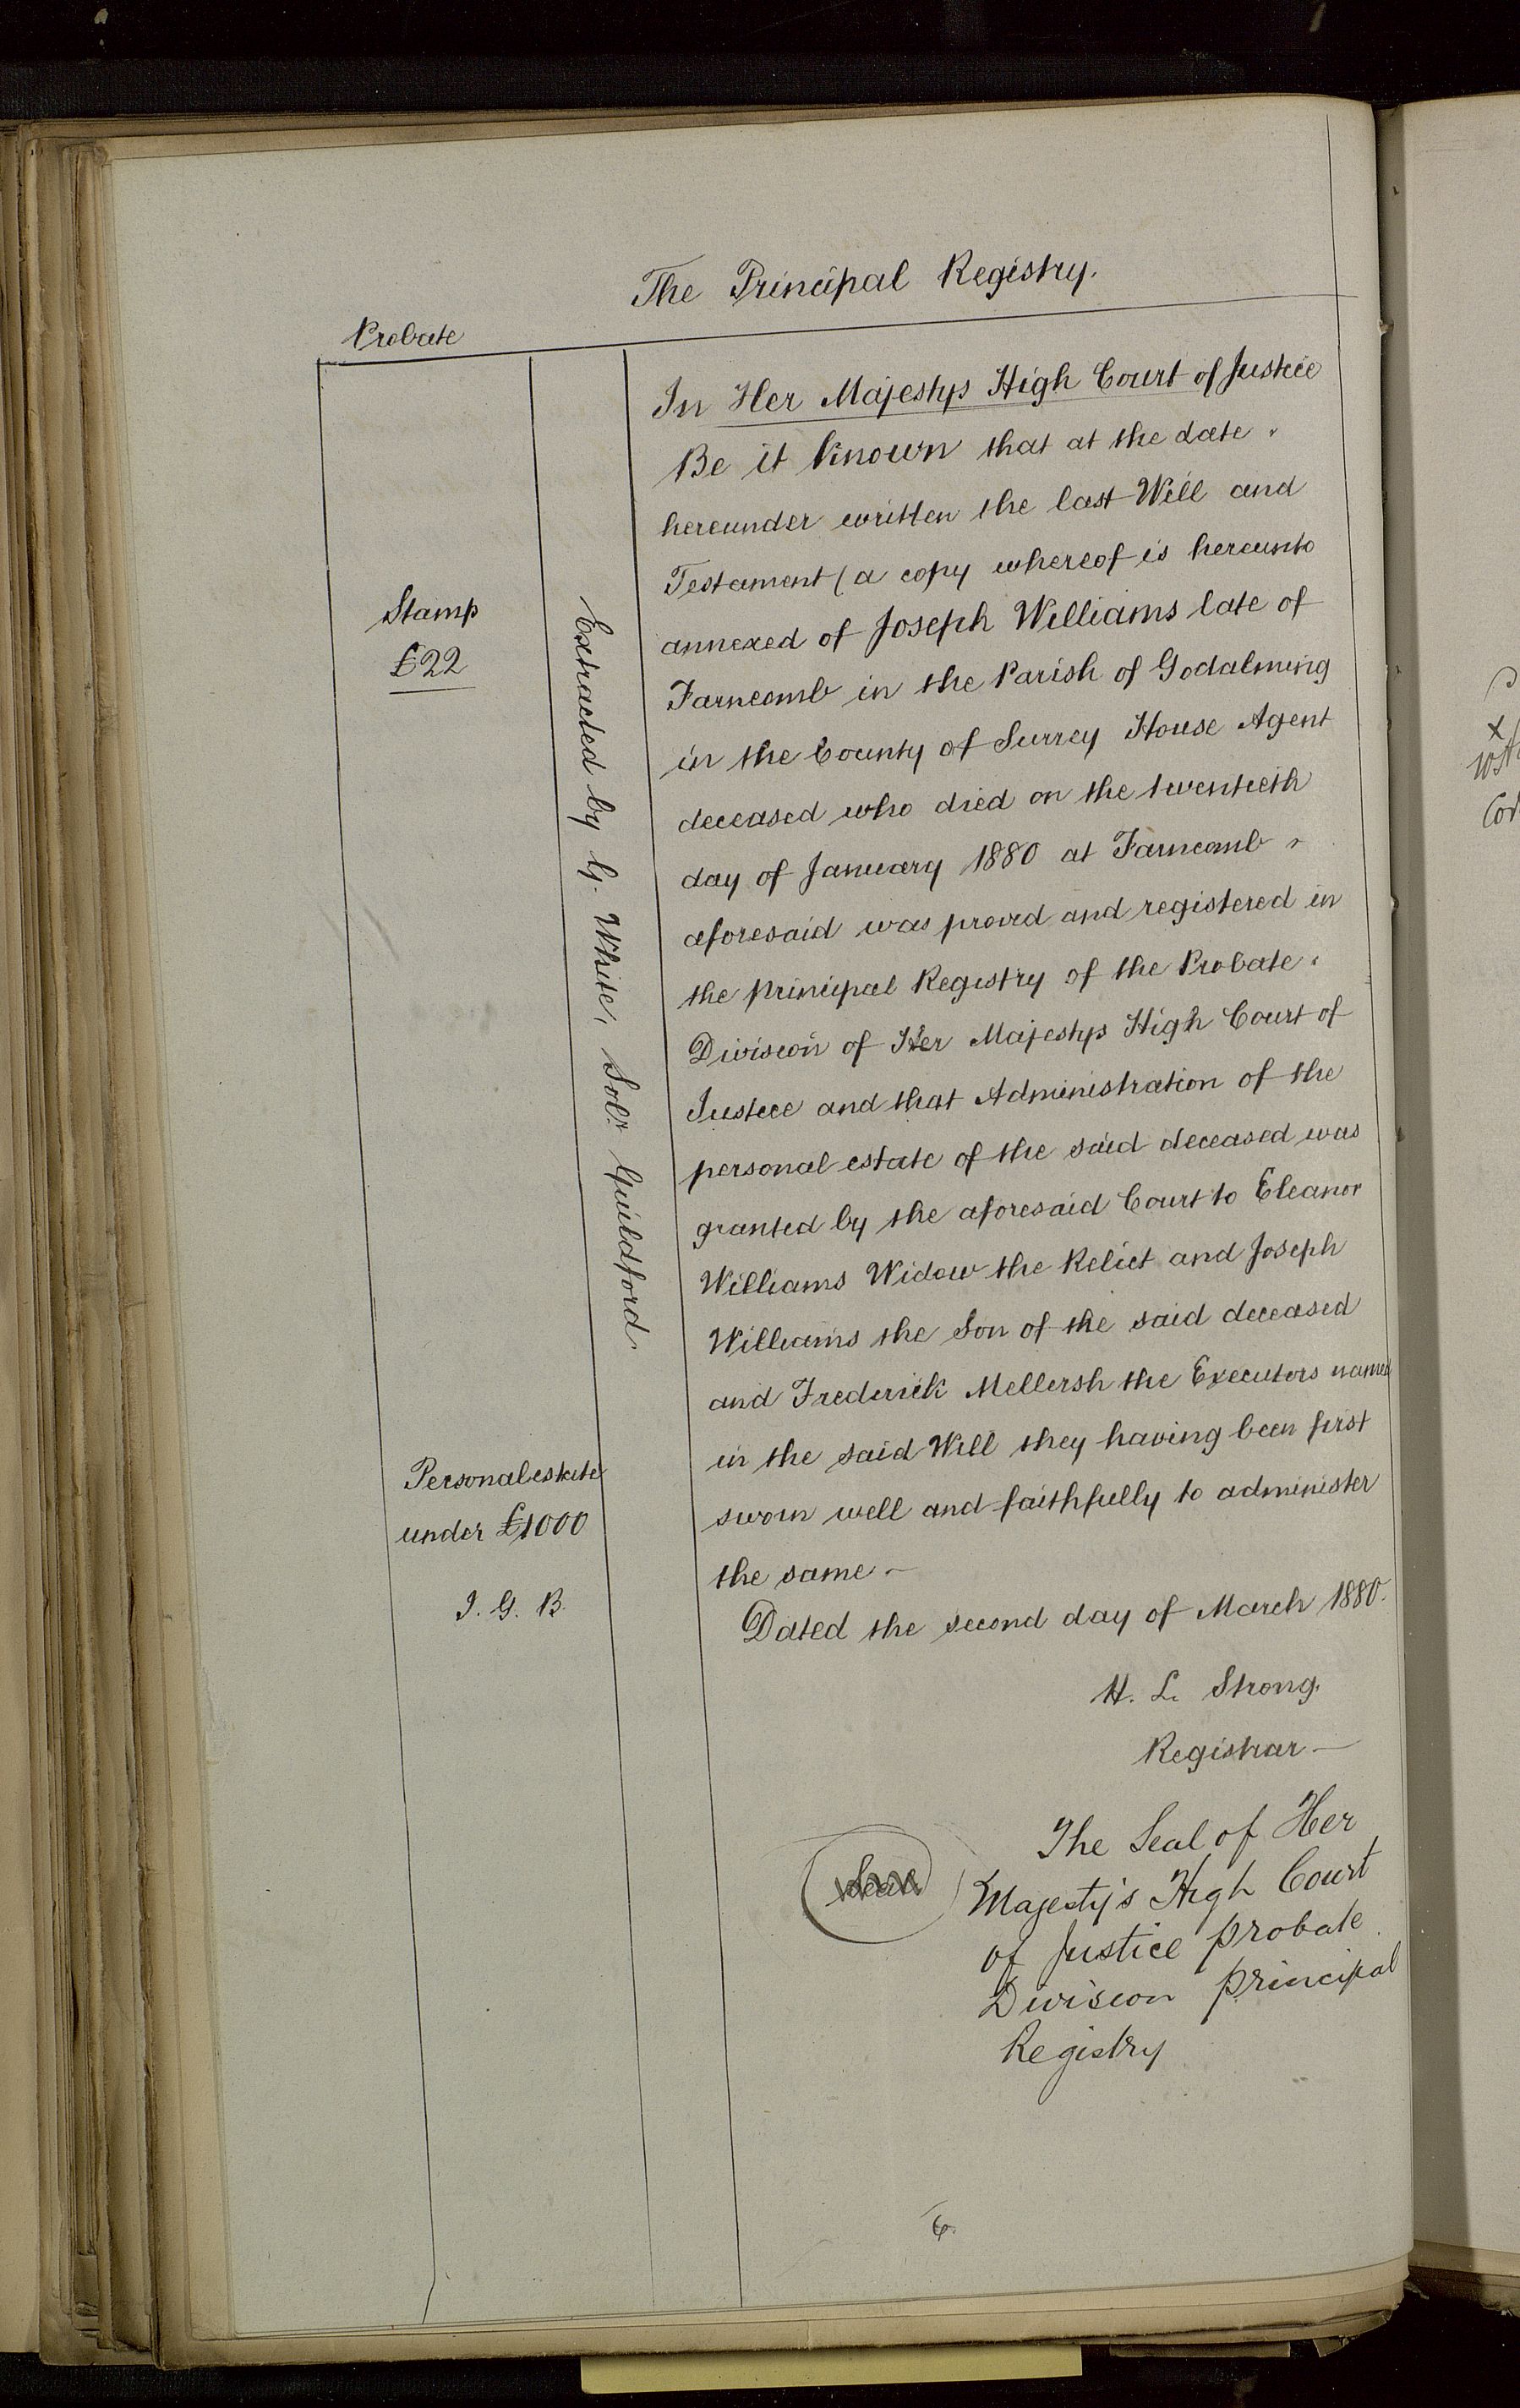 The Principal Registry.
Probate
In Her Majestys High Court of Justice
Be it known that at the date
hereunder written the last Will and
Testament (a copy whereof is hereunto
annexed of Joseph Williams late of
Farncomb in the Parish of Godalming
in the County of Surrey House Agent
deceased who died on the twentieth
day of January 1880 at Farncomb
aforesaid was proved and registered in
the principal Registry of the Probate
Division of Her Majestys High Court of
Justice and that Administration of the
personal estate of the said deceased was
granted by the aforesaid Court to Eleanor
Williams Widow the Relict and Joseph
Williams the Son of the said deceased
and Frederick Mellersh the Executors named
in the said Will they having been first
sworn well and faithfully to administer
the same —
Dated the second day of March 1880.
H. L. Strong.
Registrar —
Seal
The Seal of Her
Majesty's High Court
of Justice probate
Division principal
Registry
Stamp
£22
Extracted by G. White, Solr. Guildford.
Personal estate
under £1000
I. G. B.